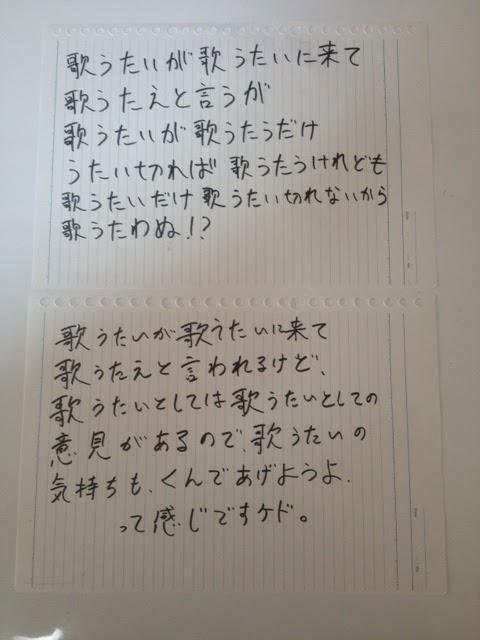 歌うたいが歌うたいに来て
歌うたえと言うが
歌うたいが歌うたうだけ
うたい切れば歌うたうけれども
歌うたいだけ歌うたい切れないから
歌うたわぬ!?
歌うたいが歌うたいに来て
歌うたえと言われるけど、
歌うたいとしては歌うたいとしての
意見があるので、歌うたいの
気持ちも、くんであげようよ、
って感じですケド。